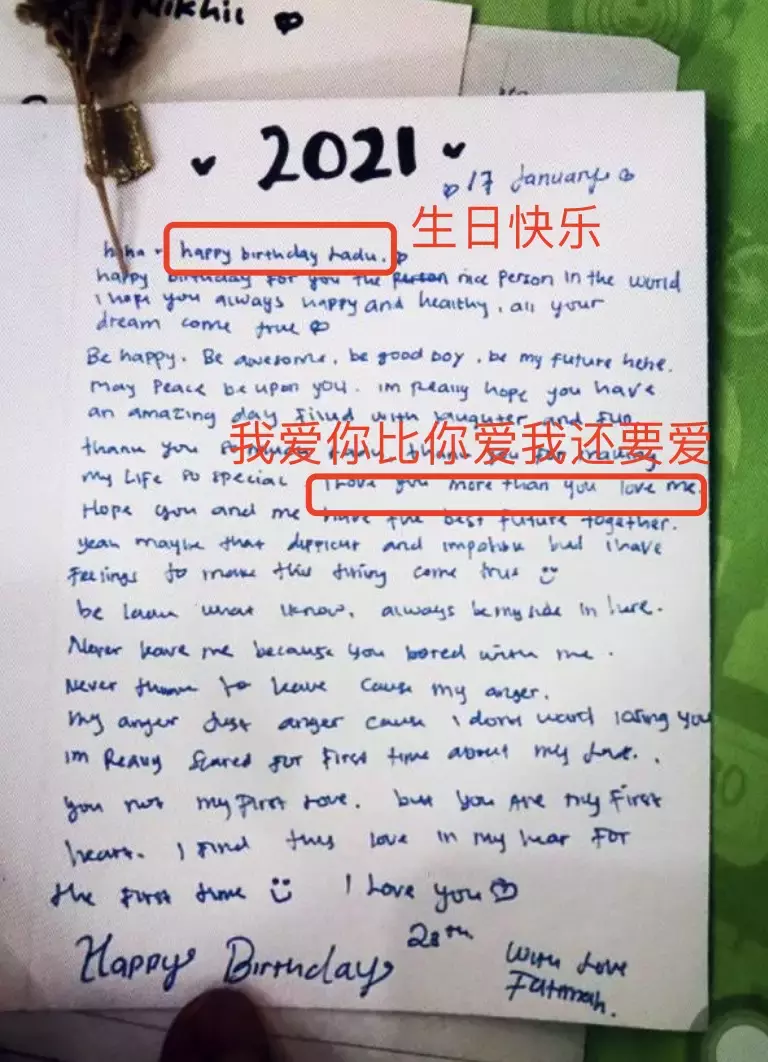 Nikhil
2021
17 January
生日快乐
haha happy birthday Ladu.
happy birthday for you the person nice person in the world
I hope you always happy and healthy, all your
dream come true
Be happy. Be awesome, be good boy, be my future hehe.
may peace be upon you. im really hope you have
an amazing day filled with laughter and fun
我爱你比你爱我还要爱
thank you so much thank you for making
my life so special I love you more than you love me.
Hope you and me have the best future together.
yeah maybe that difficult and but I have
feelings to make this thing come true
be what I know, always be my side in
Never leave me because you bored with me.
Never to leave cause my anger.
my anger just anger cause I dont losing you
im really scared for first time about my love.
you not my first love. but you are my first
heart. I find this love in my hear for
the first time I love you
Happy Birthday 28th
with love
Fatimah.